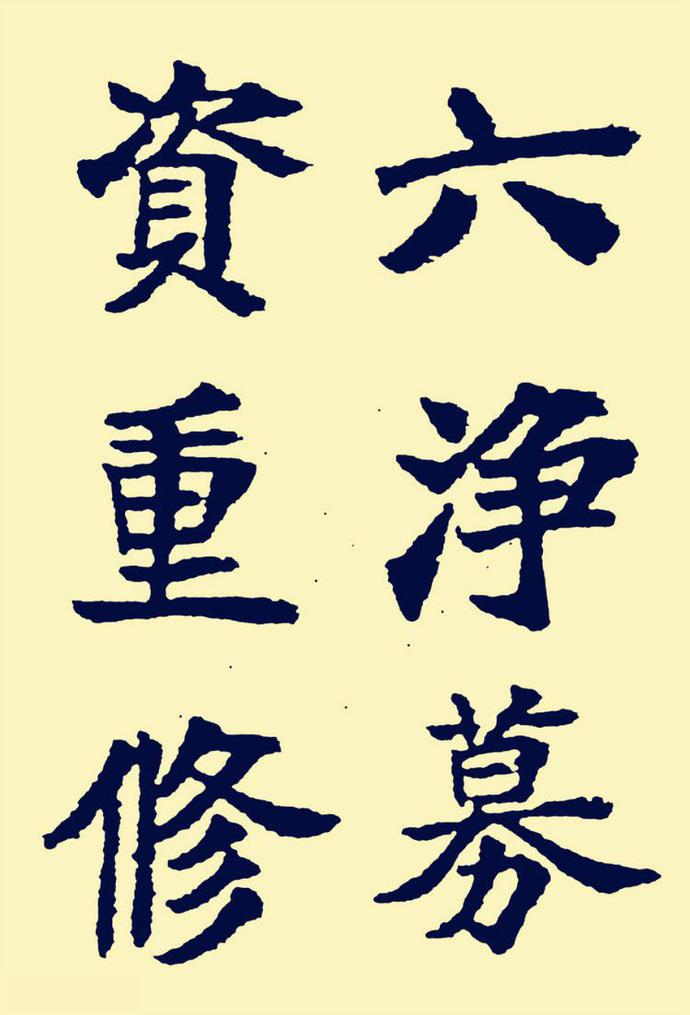 六净募
資重修